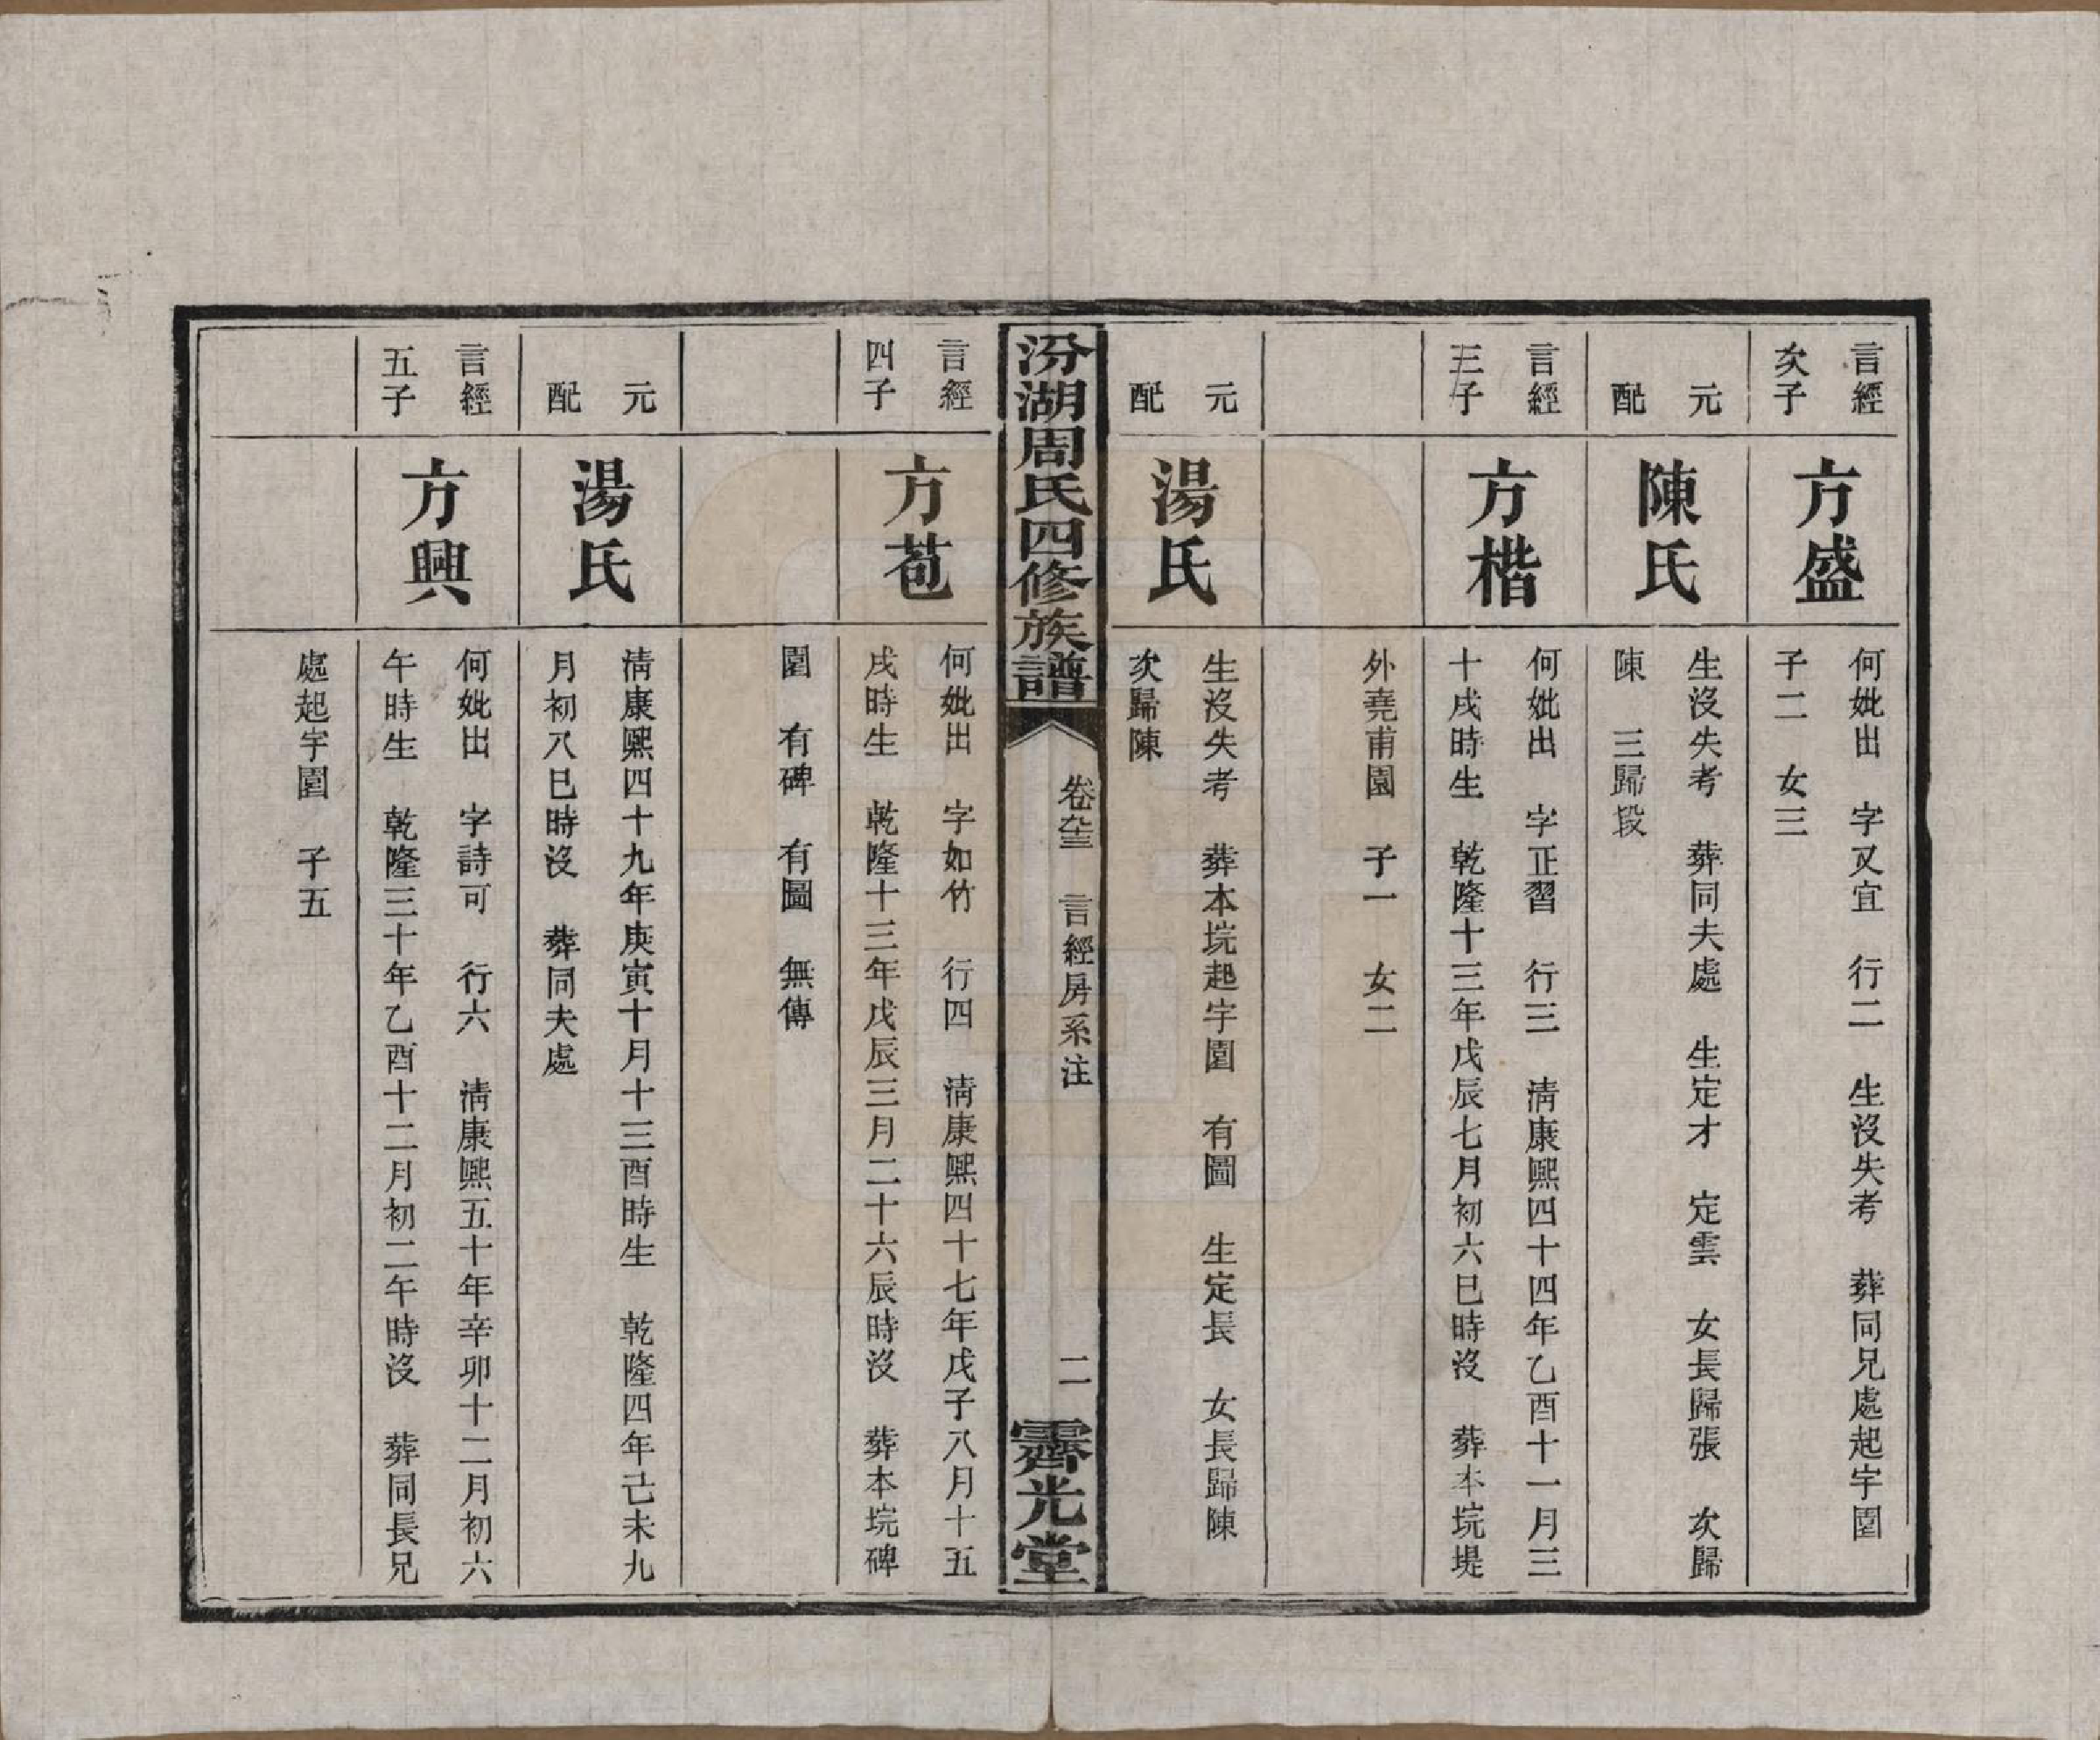 言經
次子
方盛
何妣出　字又宜　行二　生沒失考　葬同兄處起字園
子二　女三
元
配
陳氏
生沒失考　葬同夫處　生定才　定雲　女長歸張　次歸
陳　三歸段
言經
三子
方楷
何妣出　字正習　行三　淸康熙四十四年乙酉十一月三
十戌時生　乾隆十三年戊辰七月初六巳時沒　葬本垸堤
外堯甫園　子一　女二
元
配
湯氏
生沒失考　葬本垸起字園　有圖　生定長　女長歸陳
次歸陳
汾湖周氏四修族譜
卷　言經房系注
二
霽光堂
言經
四子
方苞
何妣出　字如竹　行四　淸康熙四十七年戊子八月十五
戌時生　乾隆十三年戊辰三月二十六辰時沒　葬本垸碑
園　有碑　有圖　無傳
元
配
湯氏
淸康熙四十九年庚寅十月十三酉時生　乾隆四年己未九
月初八巳時沒　葬同夫處
言經
五子
方興
何妣出　字詩可　行六　淸康熙五十年辛卯十二月初六
午時生　乾隆三十年乙酉十二月初二午時沒　葬同長兄
處起字園　子五